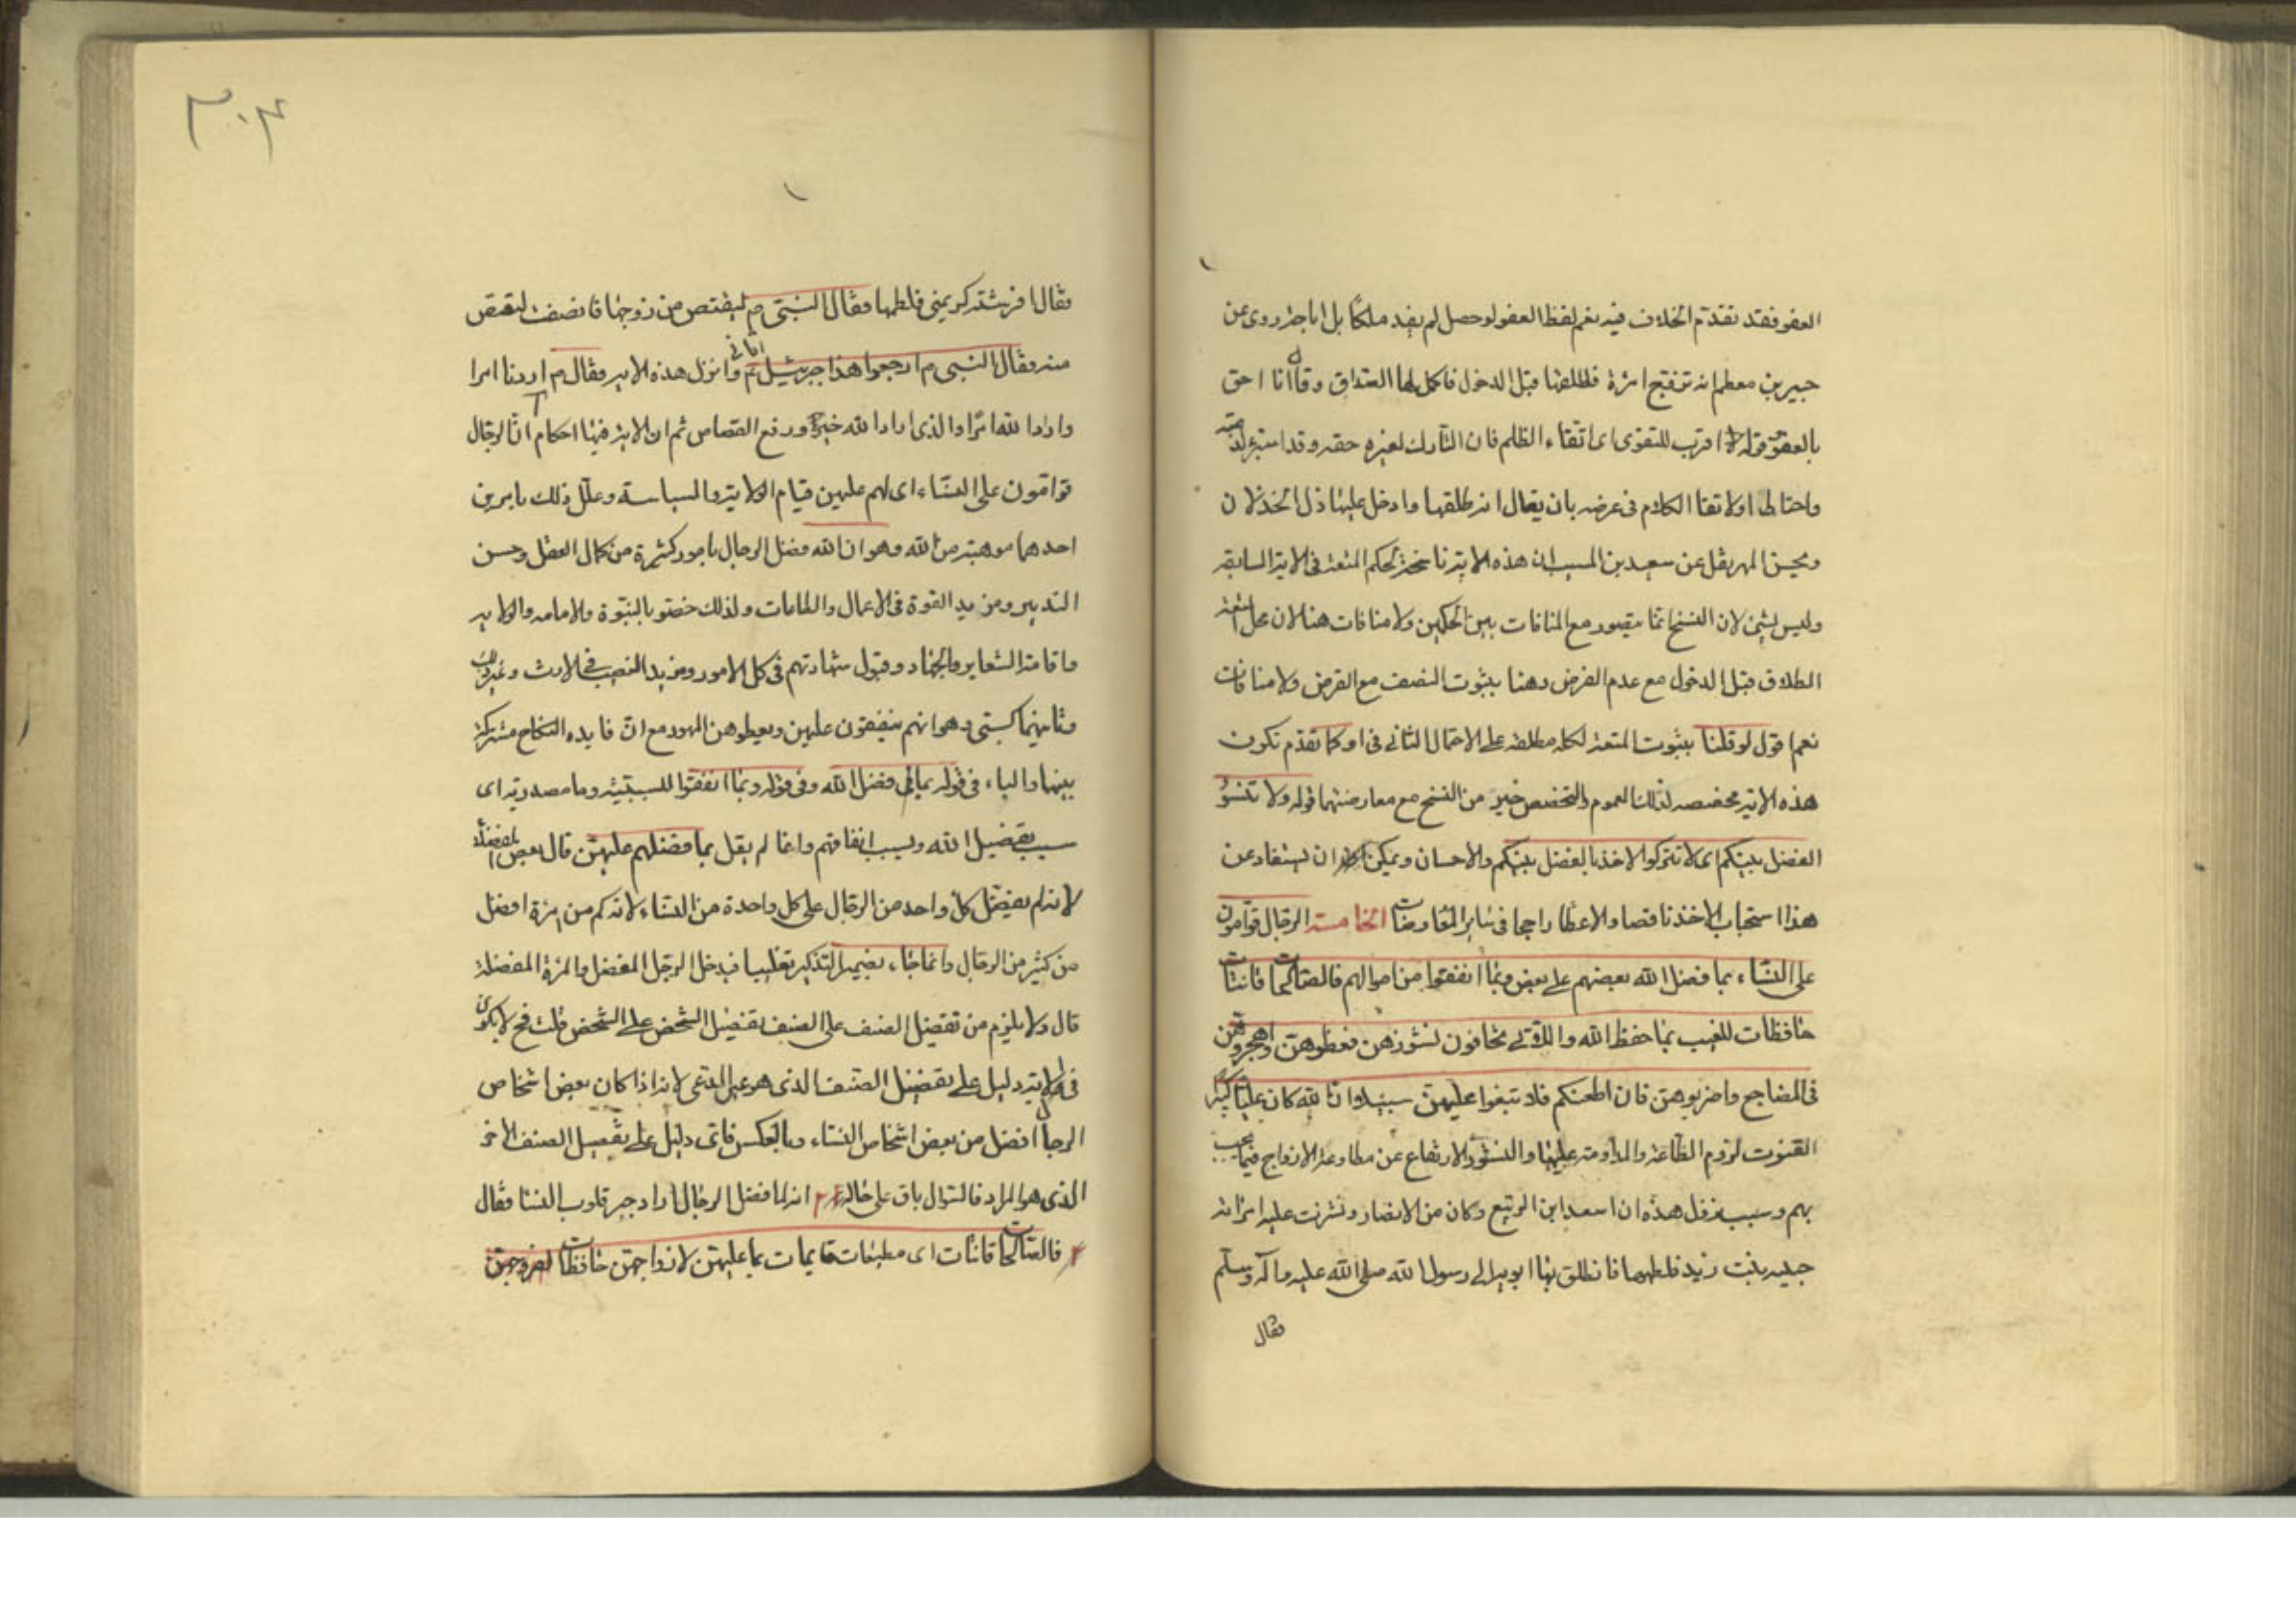 العفو فقد تقدم الخلاف فيه نعم لفظ العفو لو حصل لم يفد ملكا بل اباحة روى عن
جبير بن مطعم انه تزوج امرئة فطلقها قبل الدخول فاكمل لها الصداق وقال انا احق
بالعفو قوله اقرب للتقوى اى اتقاء الظلم فان التارك لغيره حقه وقد استبرء لذمته
واحتاط اولاتقا الكلام فى عرضه بان يقال انه طلقها وادخل عليها ذل الخذلان
وبخس المهر نقل عن سعيد بن المسيب ان هذه الاية ناسخة لحكم المتعة فى الاية السابقه
وليس بشئ لان النسخ انما يتصور مع المنافات بين الحكمين ولا منافات هنا لان محل المتعة
الطلاق قبل الدخول مع عدم الفرض وهنا بثبوت النصف مع الفرض ولا منافات
نعم اقول لو قلنا بثبوت المتعة لكل مطلقه على الاحتمال الثانى فى او كما تقدم تكون
هذه الاية مخصصه لذلك العموم والتخصيص خير من النسخ مع معارضتهما قوله ولا تنسوا
الفضل بينكم اى لا تتركوا الاخذ بالفضل بينكم والاحسان ويمكن ان يستفاد عن
هذا استحباب الاخذ ناقصا والاعطا راجحا فى ساير المعاوضات الخامسة الرجال قوامون
على النساء بما فضل الله بعضهم على بعض وبما انفقوا من اموالهم فالصالحات قانتات
حافظات للغيب بما حفظ الله واللاتى تخافون نشوزهن فعظوهن واهجروهن
فى المضاجع واضربوهن فان اطعنكم فلا تبغوا عليهن سبيلا ان الله كان عليا كبيرا
القنوت لزوم الطاعة والمداومة عليها والنشوز الارتفاع عن مطاوعة الازواج فيما يجب
بهم وسبب نزول هذه ان اسعد ابن الربيع وكان من الانصار ونشزت عليه امراته
حبيبه بنت زيد فلطمها فانطلق بها ابوها الى رسول الله صلى الله عليه وآله وسلم
فقال
٣٠٤
فقال افرشته كريمتى فلطمها فقال النبى م ليقتص من زوجها فانصرفت لتقتص
منه فقال النبى م ارجعوا هذا جبرئيل ع اتانى وانزل هذه الاية فقال م اردنا امرا
واراد الله امرا والذى اراد الله خير ورفع القصاص ثم ان الاية فيها احكام آ الرجال
قوامون على النساء اى لهم عليهن قيام الولاية والسياسة وعلل ذلك بامرين
احدهما موهبة من الله وهو ان الله فضل الرجال بامور كثيرة من كمال العقل وحسن
التدبير ومزيد القوة فى الاعمال والطاعات ولذلك خصوا بالنبوة والامامه والولايه
واقامة الشعاير والجهاد وقبول شهادتهم فى كل الامور ومزيد النصيب فى الارث وغير ذلك
وثانيهما كسبى وهو انهم ينفقون عليهن ويعطوهن المهور مع ان فايده النكاح مشتركة
بينهما والباء فى قوله بما فضل الله وفى قوله وبما انفقوا للسببية وما مصدرية اى
بسبب تفضيل الله وبسبب انفاقهم وانما لم يقل بما فضلهم عليهن قال بعض الفضلاء
لانه لم يفضل كل واحد من الرجال على كل واحدة من النساء لانه كم من امرئة افضل
من كثير من الرجال وانما جاء بضمير التذكير تغليبا فيدخل الرجل المفضل والمرئة المفضلة
قال ولا يلزم من تفضيل الصنف على الصنف تفضيل الشخص على الشخص قلت فح لا يكون
فى الاية دليل على تفضيل الصنف الذى هو عين المدعى لانه اذا كان بعض اشخاص
الرجال افضل من بعض اشخاص النساء وبالعكس فاى دليل على تفضيل الصنف الاخر
الذى هو المراد فالسوال باق على حاله انه لما فضل الرجال اراد جبر قلوب النسا فقال
٢ فالصالحات قانتات اى مطيعات قايمات بما عليهن لازواجهن حافظات لفروجهن